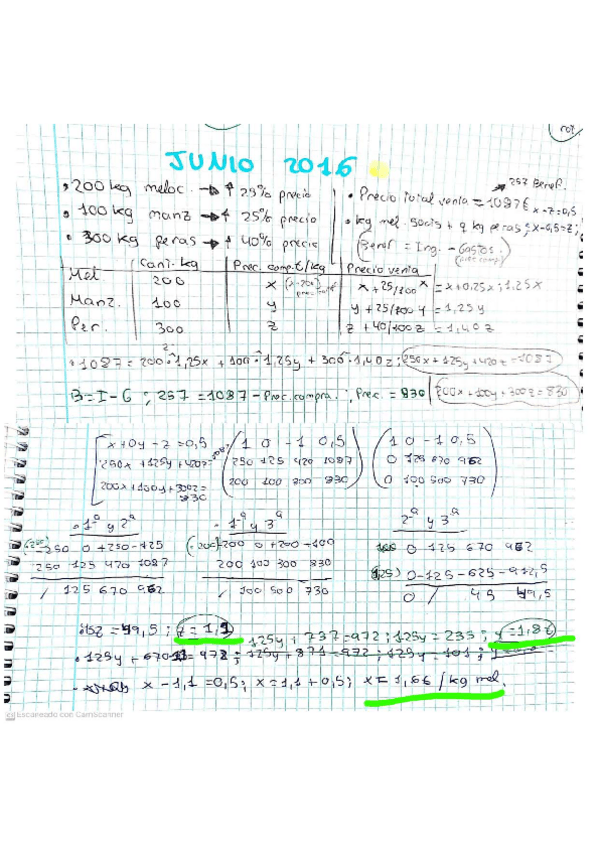 JUNIO 2016
• 200 kg meloc. → ↑ 25% precio
• 100 kg manz → ↑ 25% precio
• 300 kg peras → ↑ 40% precio
257 Benef.
• Precio total venta = 1087€
x-z=0,5
Benef = Ing. - Gastos.
Cant. kg Prec. comp.t/kg Precio venta
Mel. 200 x x+25/100 x = x+0,25x; 1,25x
Manz. 100 y y+25/100 y = 1,25y
Per. 300 z z+40/100 z = 1,40z
• 1087 = 200·1,25x + 100·1,25y + 300·1,40z; 250x+125y+420z=1087
B=I-G; 257=1087-Prec.compra.; Prec.=830 200x+100y+300z=830
x+0y-z=0,5
250x+125y+420z=
200x+100y+300z=
830
1 0 -1 0,5
250 125 420 1087
200 100 300 830
1 0 -1 0,5
0 125 670 962
0 100 500 730
• 1ª y 2ª
-250 0 +250 -125
250 125 420 1087
/ 125 670 962
- 1ª y 3ª
(-200) -200 0 +200 -100
200 100 300 830
/ 100 500 730
2ª y 3ª
100 0 125 670 962
125) 0 -125 -625 -912,5
0 / 45 49,5
45z=49,5; z=1,1
125y+737=972; 125y=235; y=1,88
x-1,1=0,5; x=1,1+0,5; x=1,66/kg mel.
Escaneado con CamScanner